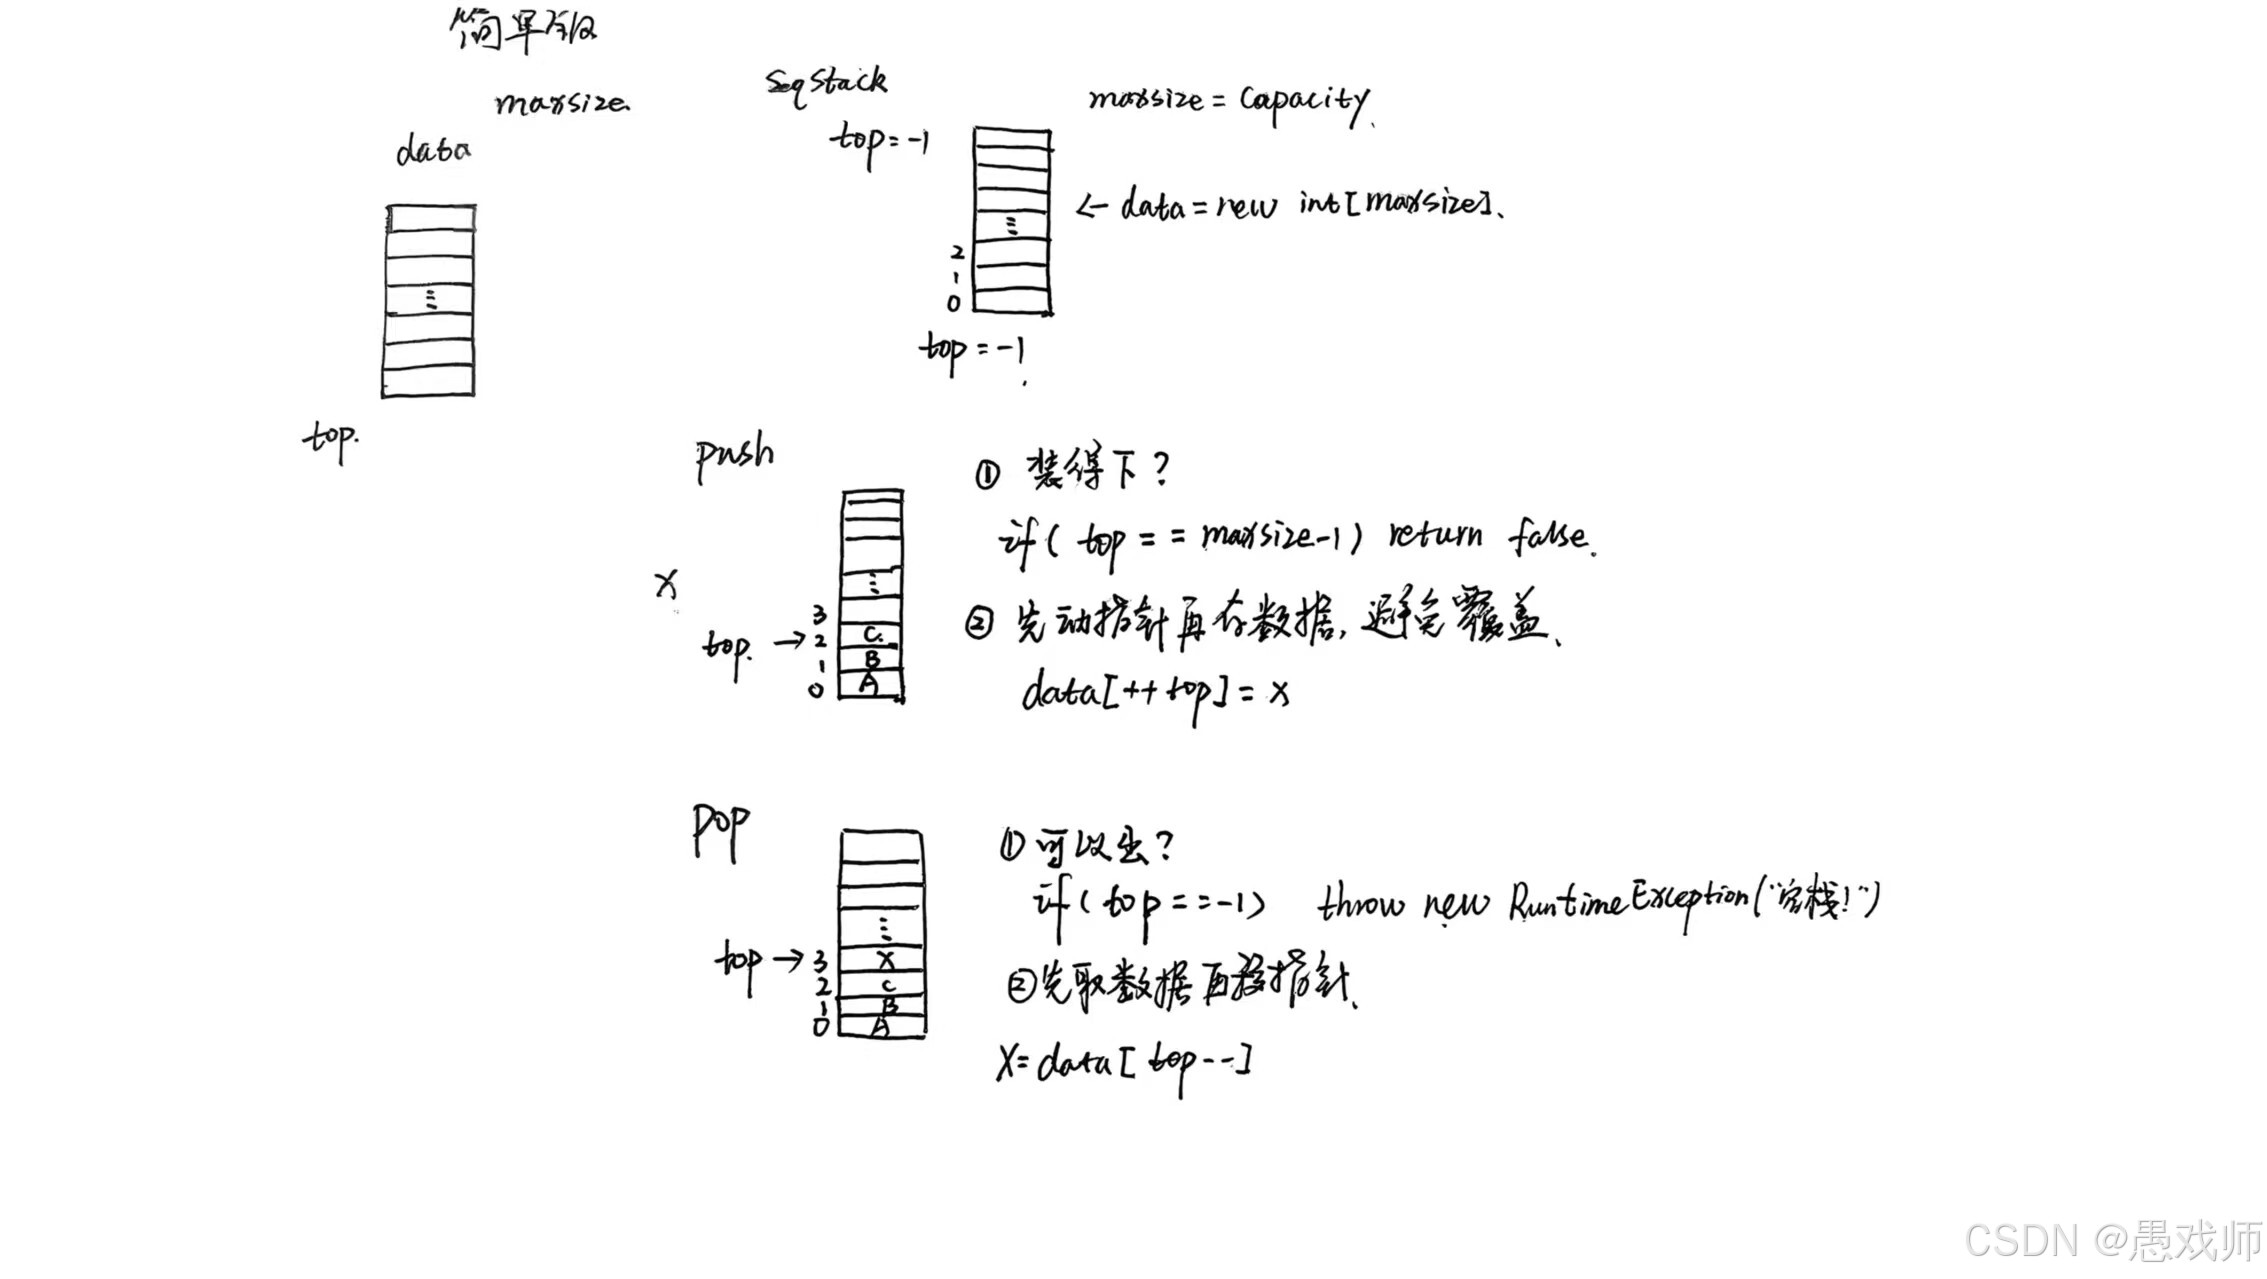 简单版
maxsize.
data
top.
SqStack
maxsize = Capacity.
top = -1
← data = new int[maxsize].
2
1
0
top = -1.
push
① 装得下?
if( top == maxsize-1) return false.
X
3
top. → 2 C.
1 B
0 A
② 先动指针再存数据, 避免覆盖.
data[++top] = x
pop
① 可以出?
if( top == -1) throw new RuntimeException("空栈!")
top → 3 X
2 C
1 B
0 A
② 先取数据再移指针.
X = data[ top--]
CSDN @愚戏师